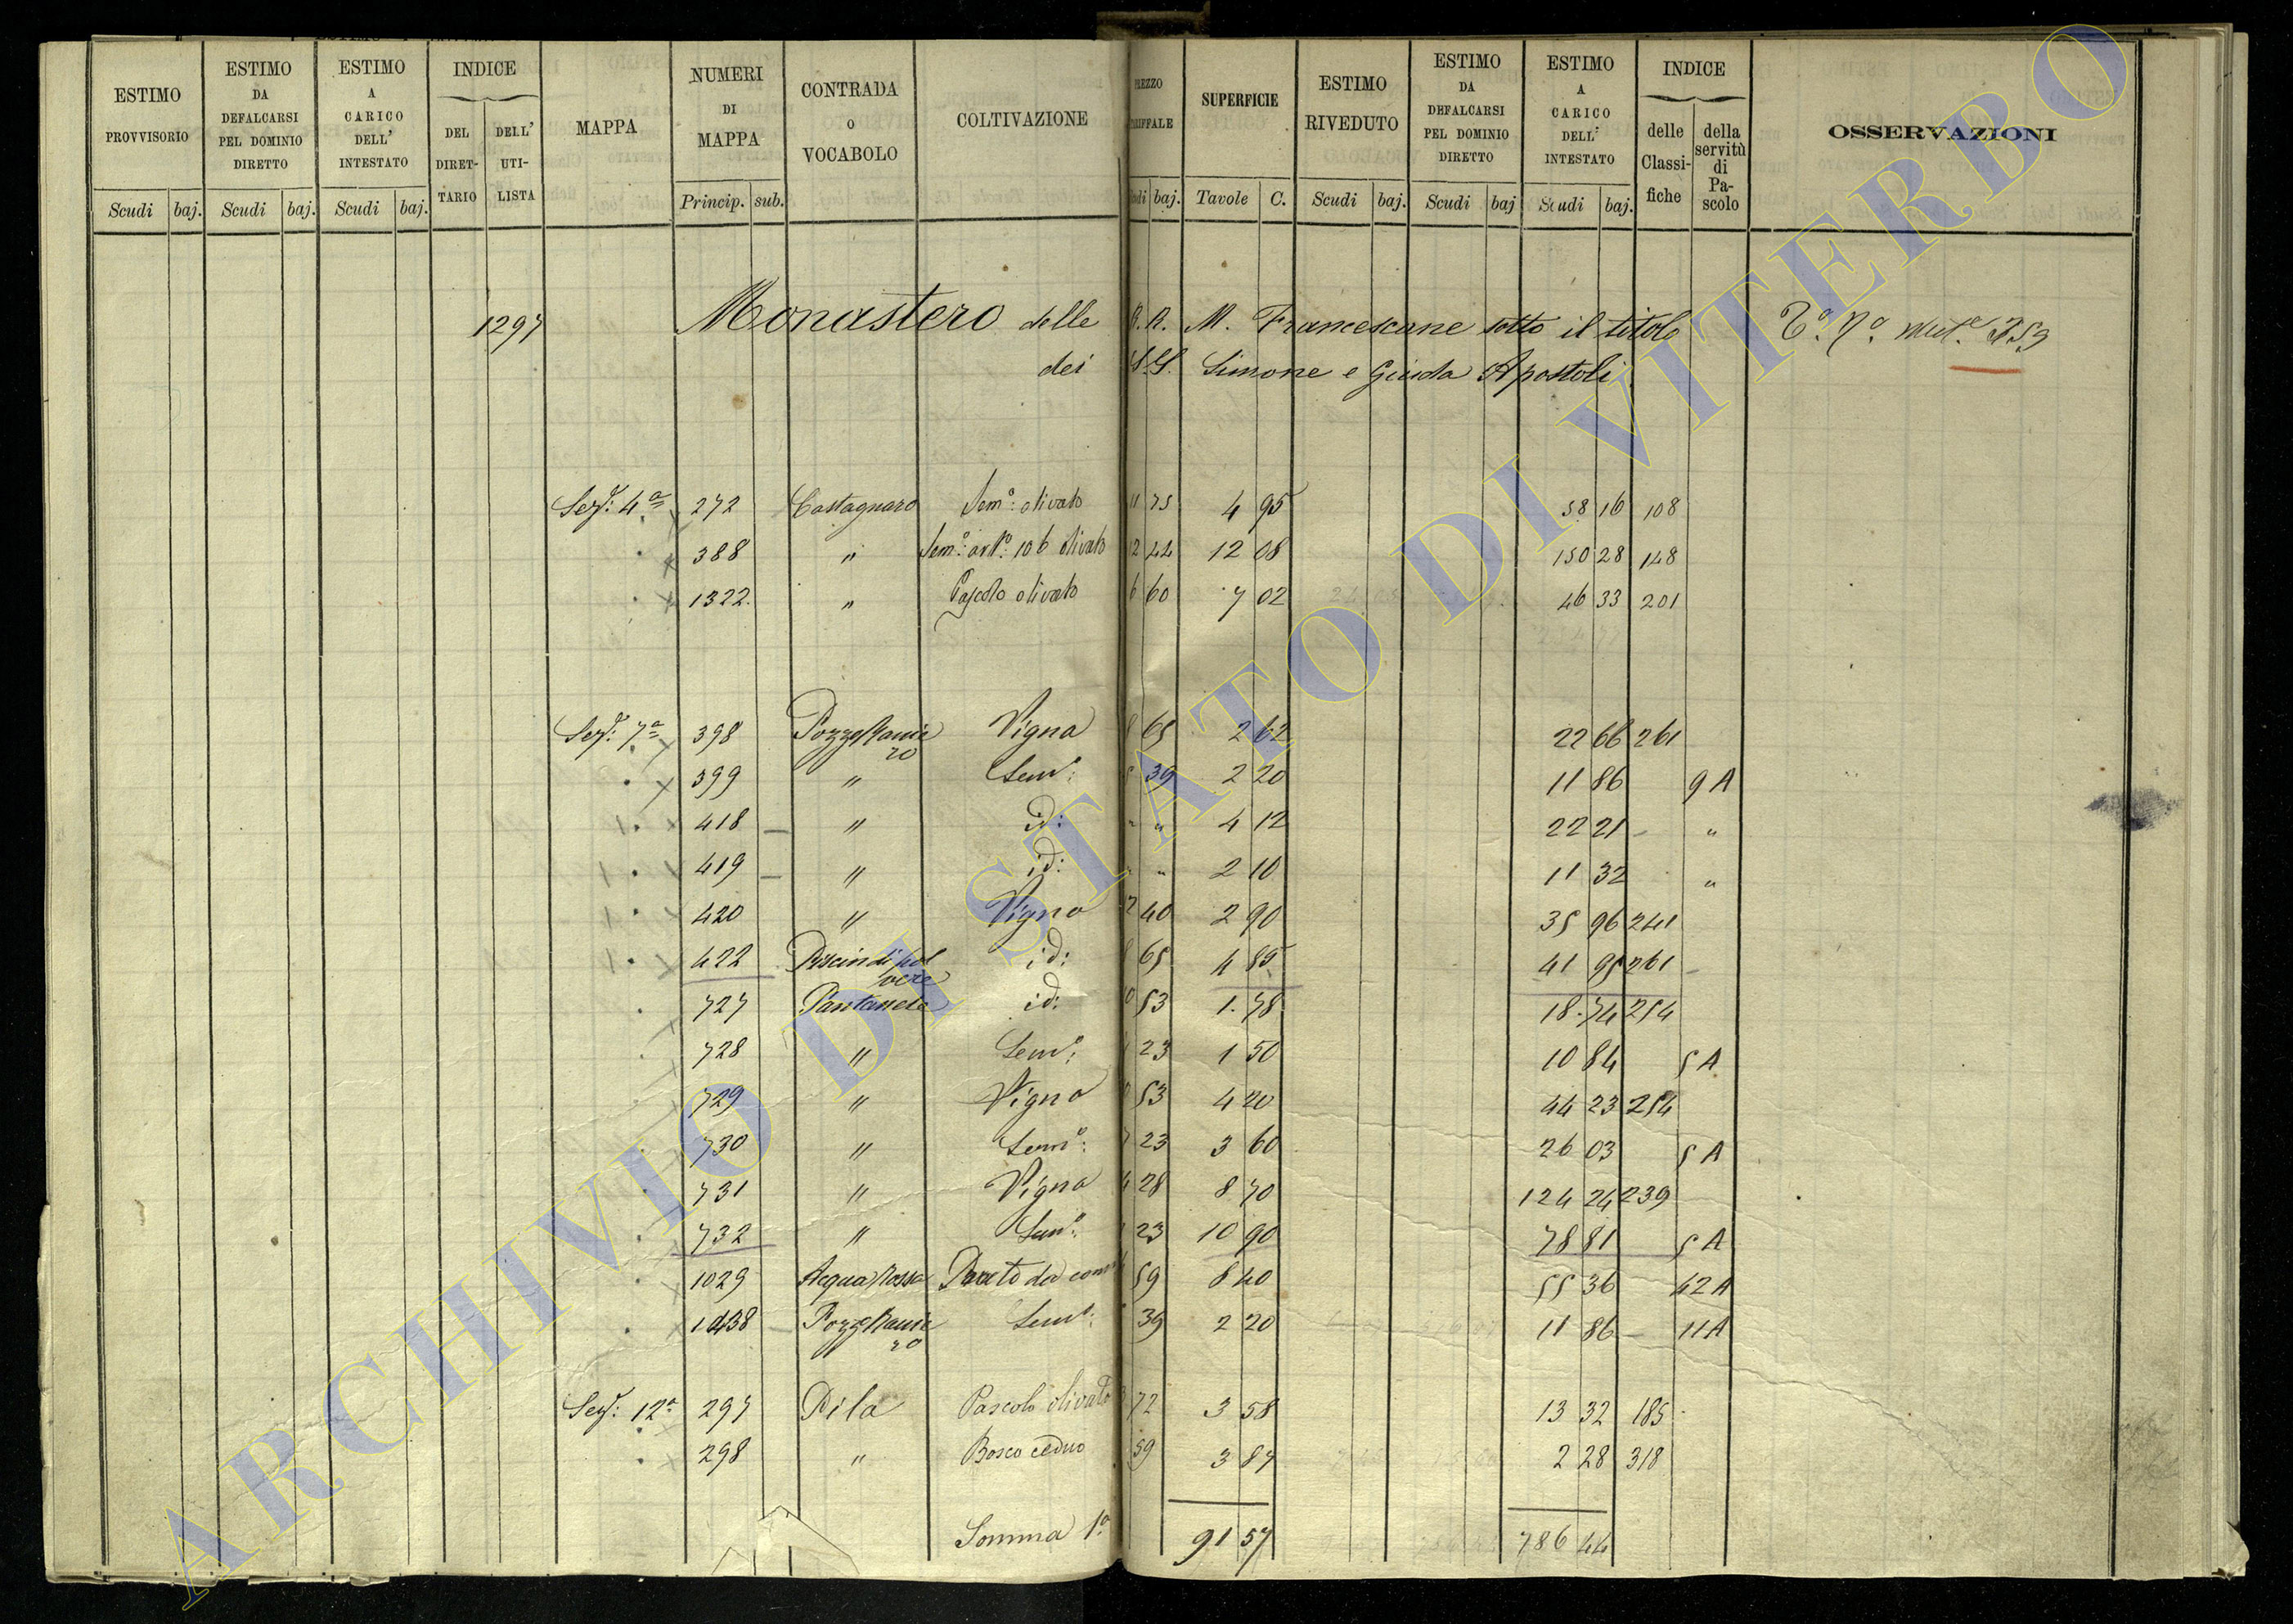 ESTIMO PROVVISORIO Scudi baj. ESTIMO DA DEFALCARSI PEL DOMINIO DIRETTO Scudi baj. ESTIMO A CARICO DELL' INTESTATO Scudi baj. INDICE DEL DIRET-TARIO DELL' UTI-LISTA MAPPA NUMERI DI MAPPA Princip. sub. CONTRADA O VOCABOLO COLTIVAZIONE
baj. SUPERFICIE Tavole C. ESTIMO RIVEDUTO Scudi baj. ESTIMO DA DEFALCARSI PEL DOMINIO DIRETTO Scudi baj ESTIMO A CARICO DELL' INTESTATO Scudi baj. INDICE delle Classi-fiche della servitù di Pa-scolo OSSERVAZIONI
1297 Monastero delle R. R. M. Francescane sotto il titolo
dei S.S. Simone e Giuda Apostoli
Sez.e: 4a 272 Castagnaro Sem.o: olivato 11 75 4 95 58 16 108
388 " Sem.o: art.o: 106 olivato 12 44 12 08 150 28 148
1322. " Pascolo olivato 6 60 7 02 46 33 201
Sez.e: 7a 398 Vigna 8 65 2 62 22 66 261
399 " Sem.o: 5 39 2 20 11 86 9 A
418 " id: " " 4 12 22 21 "
419 " id: " " 2 10 11 32 "
420 " Vigna 2 40 2 90 35 96 241
422 id: 8 65 4 85 41 95 261
727 Pantanelle id: 53 1.78 18.74 254
728 " Sem.o: 23 1 50 10 84 5 A
729 " Vigna 53 4 20 44 23 254
730 " Sem.o: 7 23 3 60 26 03 5 A
731 " Vigna 4 28 8 70 124 24 239
732 " Sem.o: 23 10 90 78 81 5 A
1029 Acqua Rossa Prato da 59 8 40 55 36 42 A
1438 Sem.o: 39 2 20 11 86 11 A
Sez.e: 12a 297 Pila Pascolo olivato 72 3 58 13 32 185
298 " Bosco ceduo 59 3 87 2 28 318
Somma 1.a 91 57 786 44
ARCHIVIO DI STATO DI VITERBO